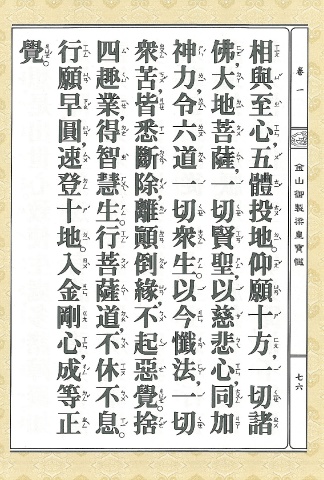 卷一
金山御製梁皇寶懺
七六
相與至心,五體投地。仰願十方,一切諸
佛大地菩薩,一切賢聖,以慈悲心,同加
神力,令六道一切眾生。以今懺法,一切
眾苦,皆悉斷除,離顛倒緣,不起惡覺。捨
四趣業,得智慧生。行菩薩道,不休不息。
行願早圓,速登十地。入金剛心,成等正
覺。